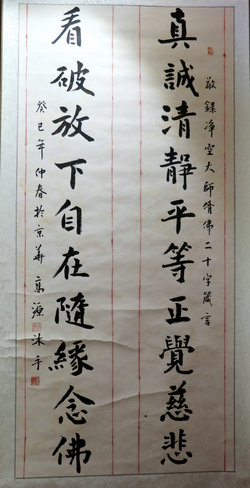 敬錄淨空大師修佛二十字箴言
真誠清靜平等正覺慈悲
看破放下自在隨緣念佛
癸巳年仲春於京華高源沐手